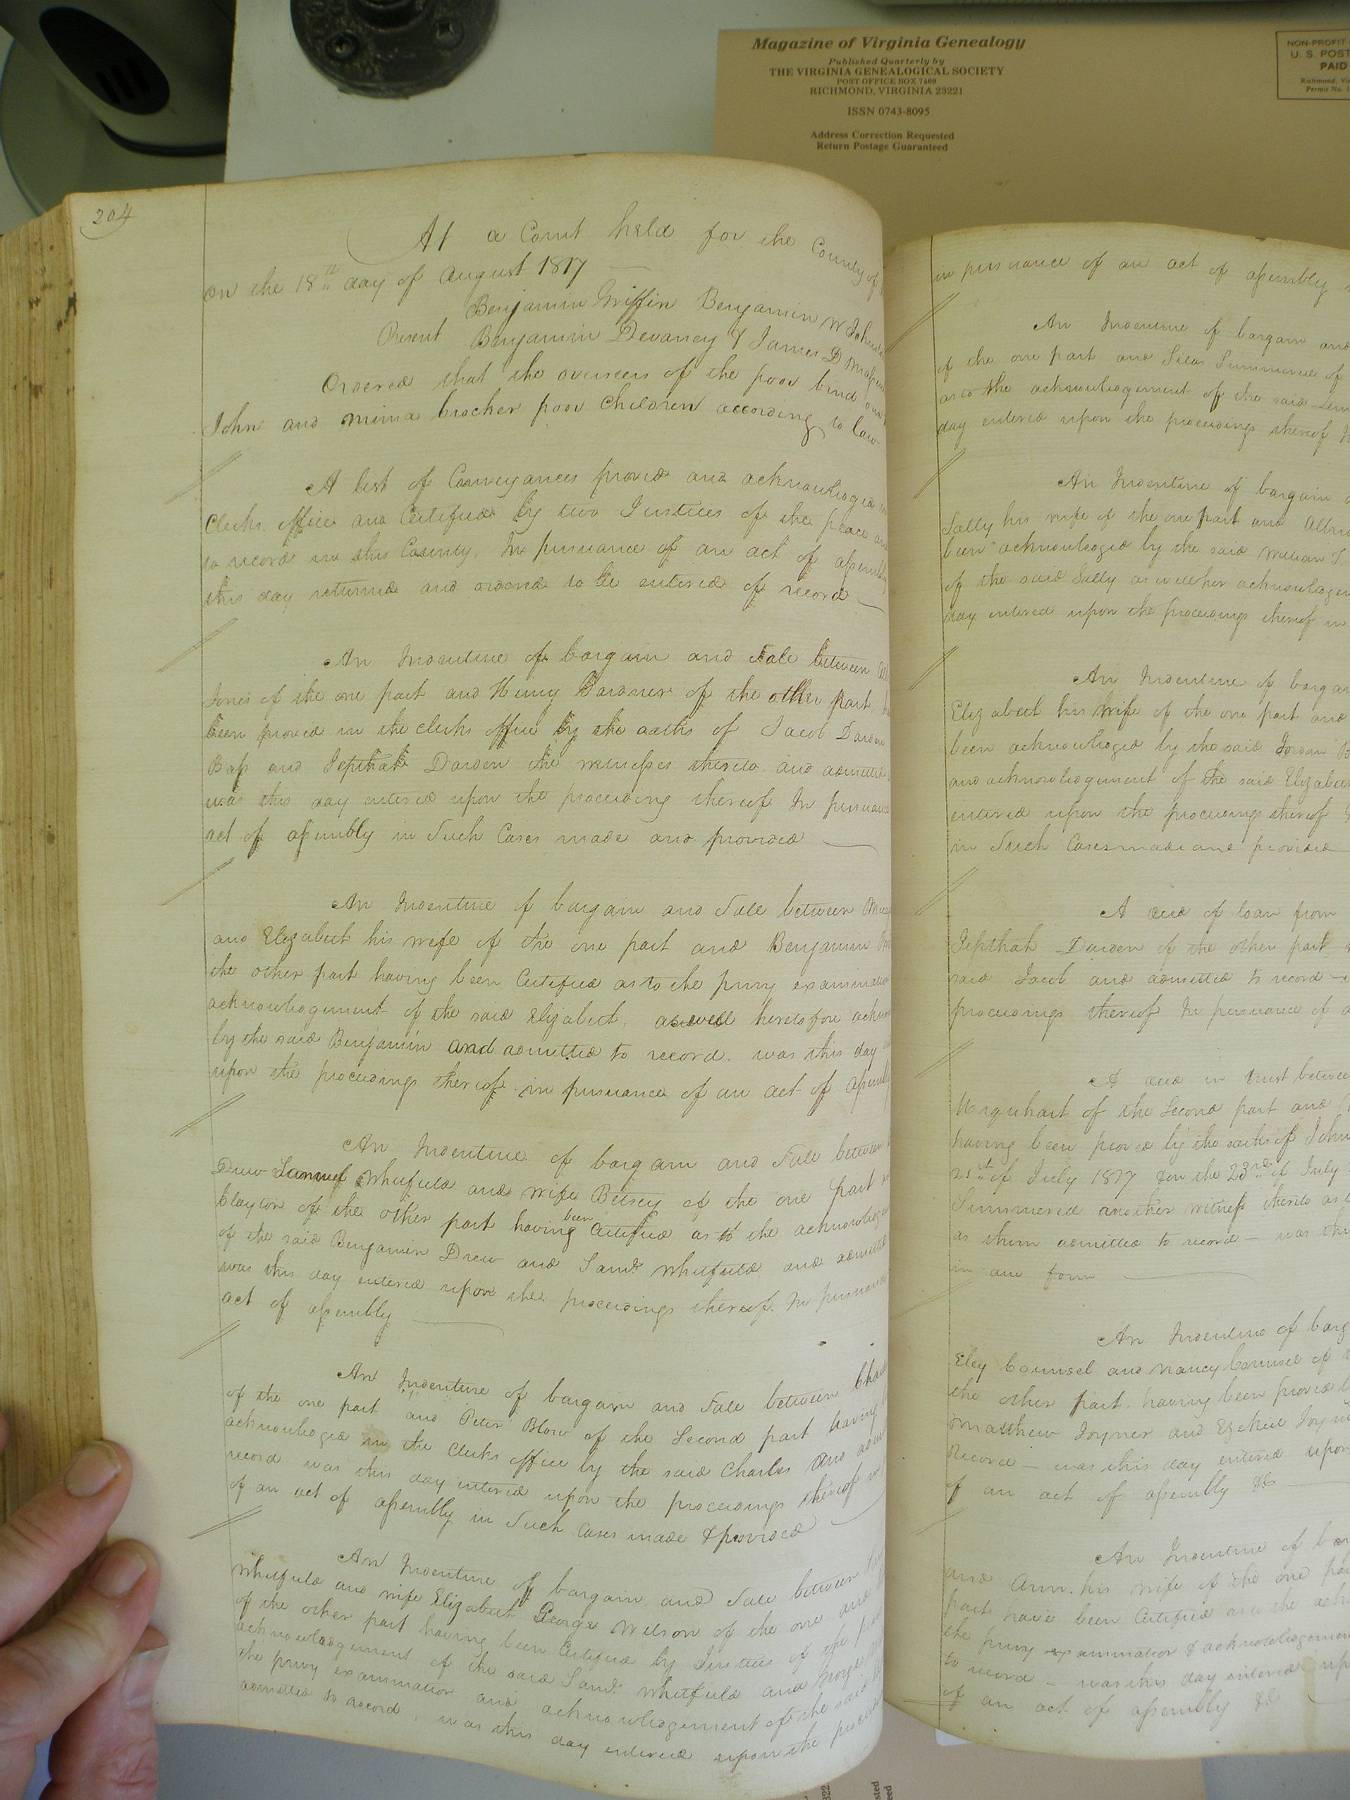 Magazine of Virginia Genealogy
Published Quarterly by
THE VIRGINIA GENEALOGICAL SOCIETY
POST OFFICE BOX 7469
RICHMOND, VIRGINIA 23221
ISSN 0743-8095
Address Correction Requested
Return Postage Guaranteed
NON-PROFIT
U. S. POST
PAID
Richmond, Va
Permit No.
204
At a Court held for the County of
on the 18th day of August 1817
Benjamin Griffin Benjamin W Johns
Present Benjamin Devaney & James D
Ordered that the overseers of the poor bind out
John and mima brocher poor Children according to law
A list of Conveyances proved and acknowledged in
Clerks office and Certified by two Justices of the peace and
to record in this County. In pursuance of an act of assembly
this day returned and ordered to be entered of record
An Indenture of bargain and Sale between
Jones of the one part and Henry Gardner of the other part
been proved in the clerks office by the oaths of Jacob Darden
Bass and Jepthah Darden the witnesses thereto and admitted
was this day entered upon the proceeding thereof In pursuance
act of assembly in Such Cases made and provided
An Indenture of bargain and Sale between
and Elizabeth his wife of the one part and Benjamin
the other part having been Certified as to the privy examination
acknowledgement of the said Elizabeth, as well heretofore acknow
by the said Benjamin and admitted to record. was this day
upon the proceedings thereof in pursuance of an act of assembly
An Indenture of bargain and Sale between
Drew Samuel Whitfield and wife Betsey of the one part
Clayton of the other part having been Certified as to the acknowledge
of the said Benjamin Drew and Saml Whitfield and admitted
was this day entered upon the proceedings thereof. In pursuance
act of assembly
An Indenture of bargain and Sale between Cha
of the one part and Peter Blow of the Second part having
acknowledged in the Clerks office by the said Charles and adm
record was this day entered upon the proceedings thereof in
of an act of assembly in Such Cases made & provided
An Indenture of bargain and Sale between
Whitfield and wife Elizabeth George Wilson of the one and
of the other part having been Certified by Justices of the peace
acknowledgement of the said Saml Whitfield and George
the privy examination and acknowledgement of the said
admitted to record, was this day entered upon the proceed
in pursuance of an act of assembly
An Indenture of bargain and
of the one part and Silas Summerell of
as to the acknowledgement of the said
day entered upon the proceedings thereof
An Indenture of bargain
Sally his wife of the one part and
been acknowledged by the said William
of the said Sally as well her acknowledgem
day entered upon the proceedings thereof in
An Indenture of bargain
Elizabeth his wife of the one part and
been acknowledged by the said Jordan
and acknowledgement of the said Elizabeth
entered upon the proceedings thereof
in Such Cases made and provided
A deed of loan from
Jepthah Darden of the other part
said Jacob and admitted to record
proceedings thereof In pursuance of a
A deed in trust between
Urquhart of the Second part and
having been proved by the oaths of John
21st of July 1817 & on the 23rd of July
Summerell another witness thereto as
as them admitted to record — was this
in due form
An Indenture of barg
Eley Counsel and Nancy Counsel of
the other part. having been proved
Matthew Joyner and Ezekiel Joyn
Record — was this day entered upon
of an act of assembly &c
An Indenture of bar
and Ann his wife of the one par
part have been Certified as to the ack
the privy examination & acknowledgemen
to record — was this day entered up
of an act of assembly &c